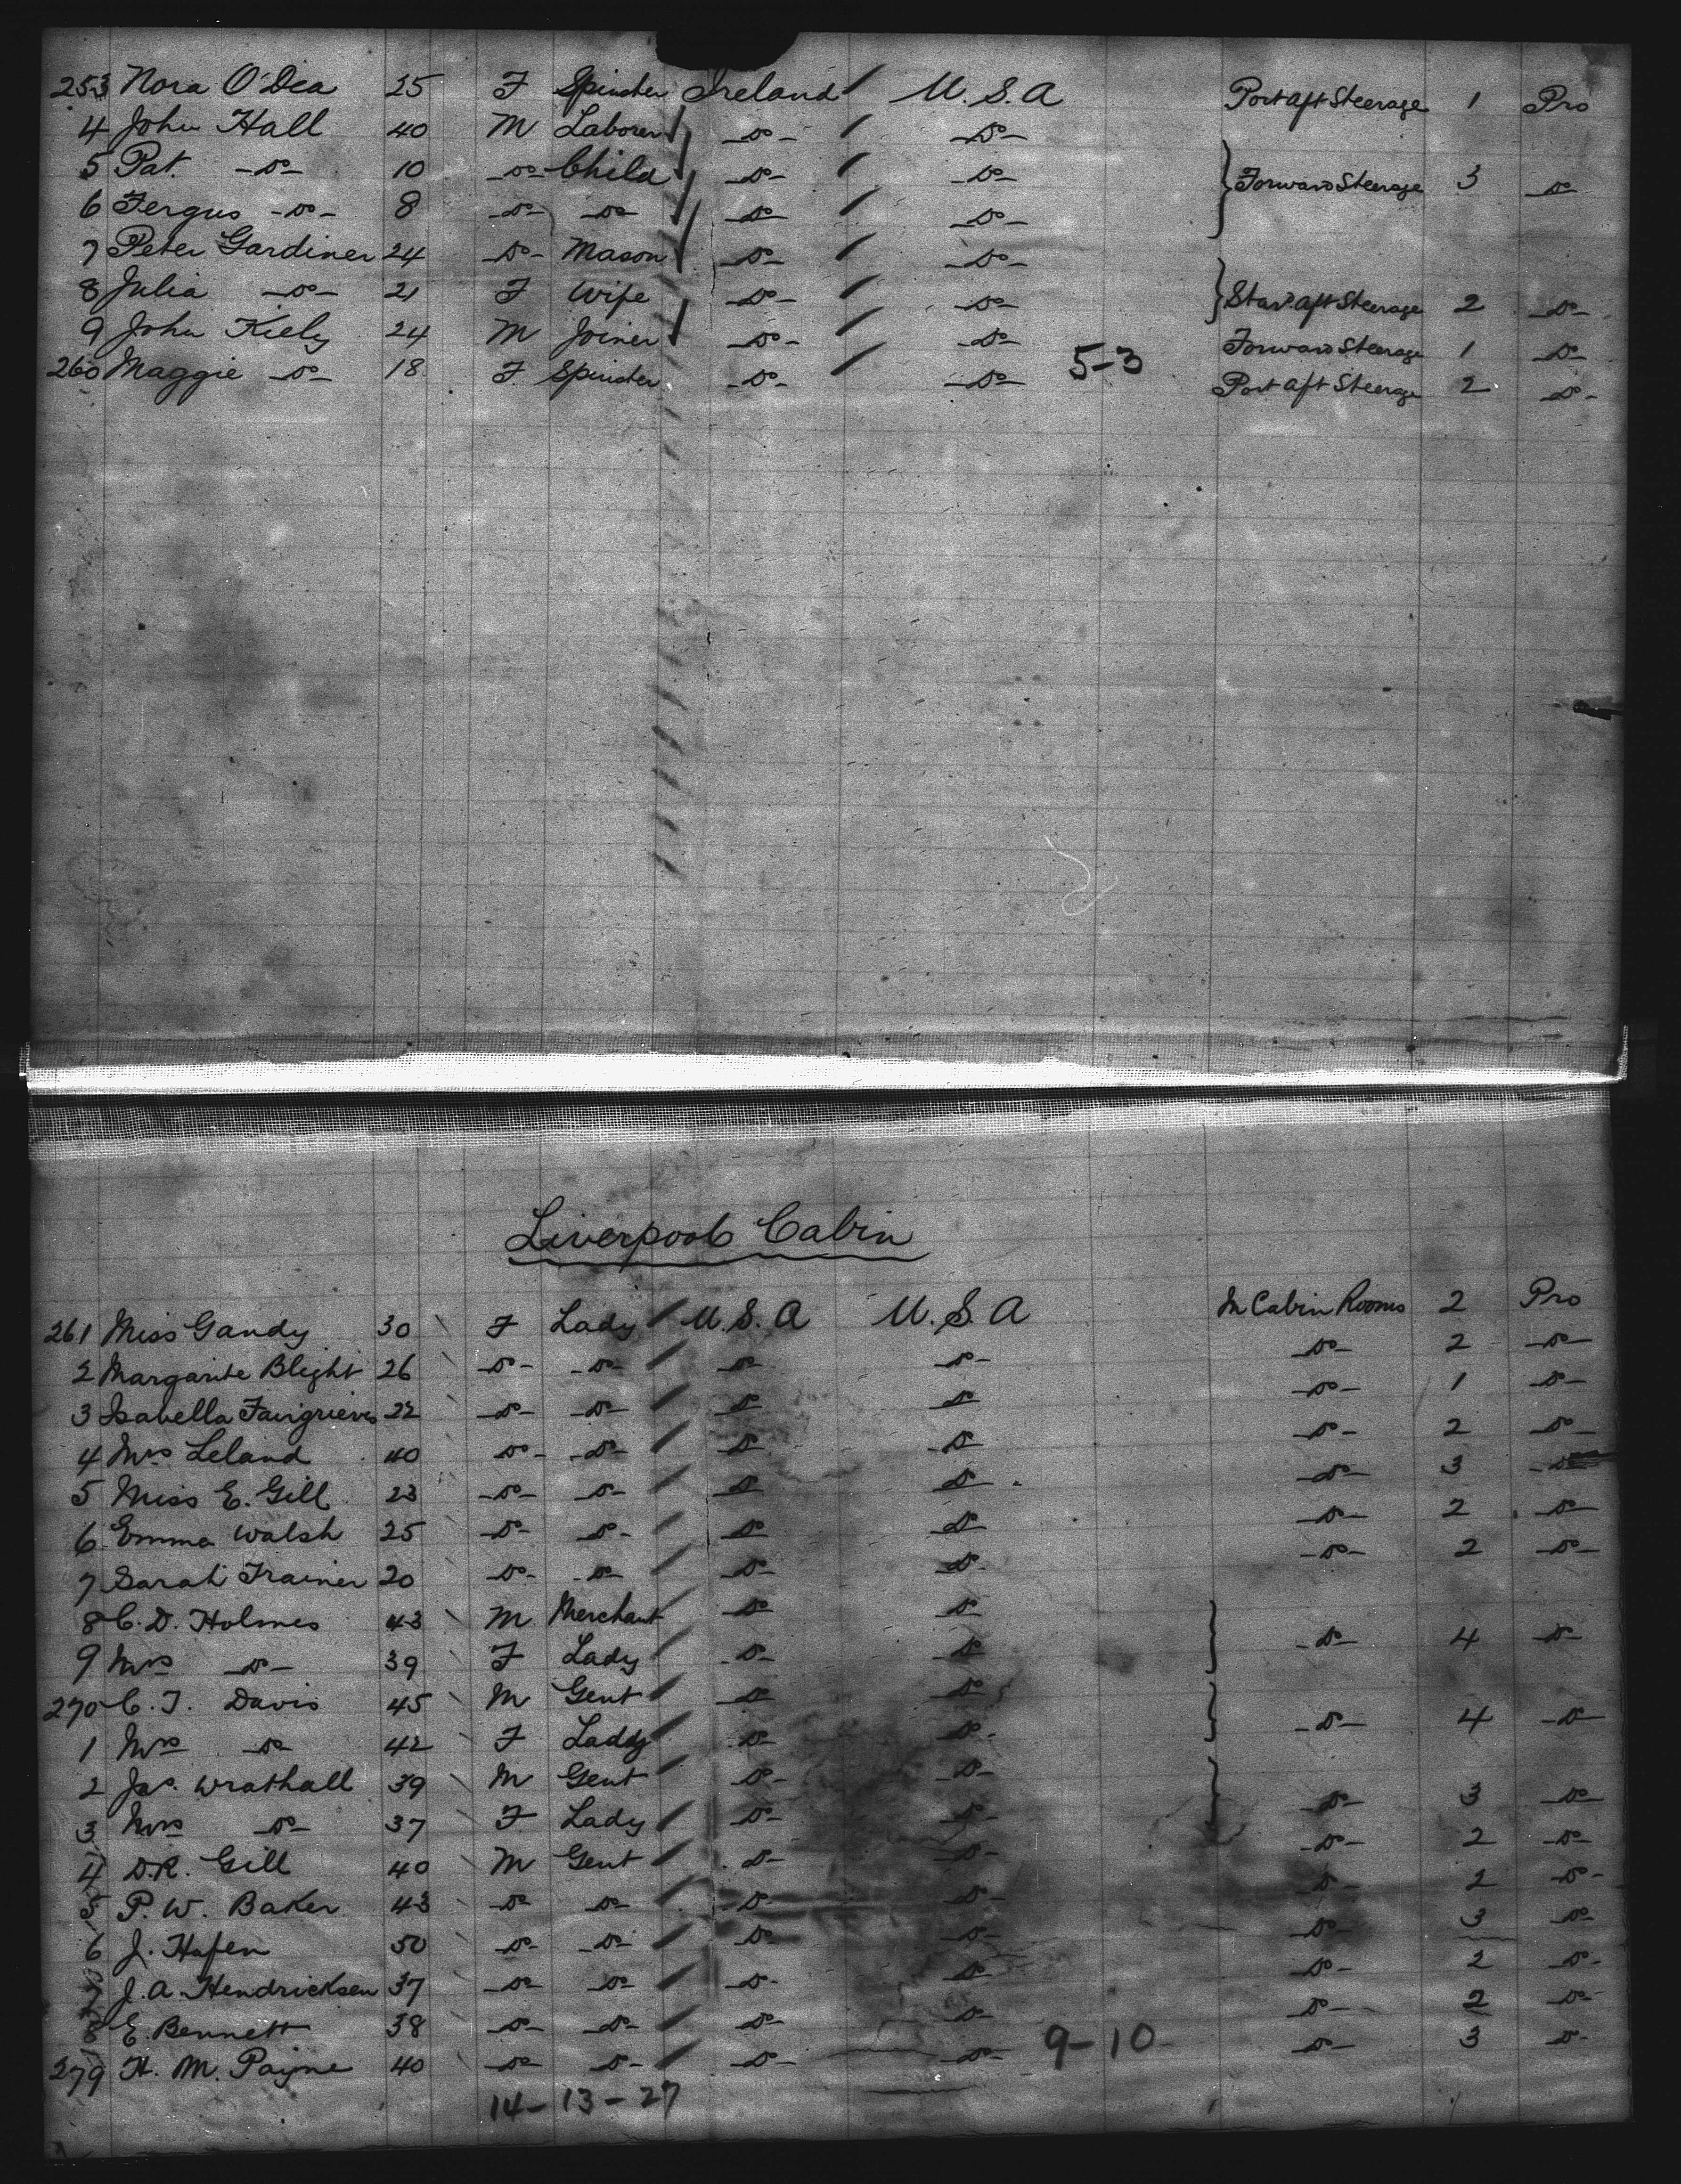 253 Nora O'Dea 25 F Spinster Ireland U.S.A Port aft Steerage 1 Pro
4 John Hall 40 M Laborer -do- -do-
5 Pat. -do- 10 -do- Child -do- -do- } Forward Steerage 3 -do-
6 Fergus -do- 8 -do- -do- -do- -do-
7 Peter Gardiner 24 -do- Mason -do- -do-
8 Julia -do- 21 F Wife -do- -do- } Star. aft Steerage 2 -do-
9 John Kiely 24 M Joiner -do- -do- Forward Steerage 1 -do-
260 Maggie -do- 18 F. Spinster -do- -do- 5-3 Port aft Steerage 2 -do-
Liverpool Cabin
261 Miss Gandy 30 F Lady U.S.A U.S.A In Cabin Rooms 2 Pro
2 Margarite Blight 26 -do- -do- -do- -do- -do- 2 -do-
3 Isabella Fairgrieves 22 -do- -do- -do- -do- -do- 1 -do-
4 Mrs Leland 40 -do- -do- -do- -do- -do- 2 -do-
5 Miss E. Gill 23 -do- -do- -do- -do- -do- 3 -do-
6 Emma Walsh 25 -do- -do- -do- -do- -do- 2 -do-
7 Sarah Trainer 20 -do- -do- -do- -do- -do- 2 -do-
8 C. D. Holmes 43 M Merchant -do- -do-
9 Mrs -do- 39 F Lady -do- -do- } -do- 4 -do-
270 C. T. Davis 45 M Gent -do- -do-
1 Mrs -do- 42 F Laddy -do- -do- } -do- 4 -do-
2 Jas. Wrathall 39 M Gent -do- -do-
3 Mrs -do- 37 F Lady -do- -do- } -do- 3 -do-
4 D.R. Gill 40 M Gent -do- -do- -do- 2 -do-
5 P. W. Baker 43 -do- -do- -do- -do- -do- 2 -do-
6 J. Hafen 50 -do- -do- -do- -do- -do- 3 -do-
7 J. A. Hendricksen 37 -do- -do- -do- -do- -do- 2 -do-
8 E. Bennett 38 -do- -do- -do- -do- -do- 2 -do-
279 H. M. Payne 40 -do- -do- -do- -do- 9-10 -do- 3 -do-
14-13-27